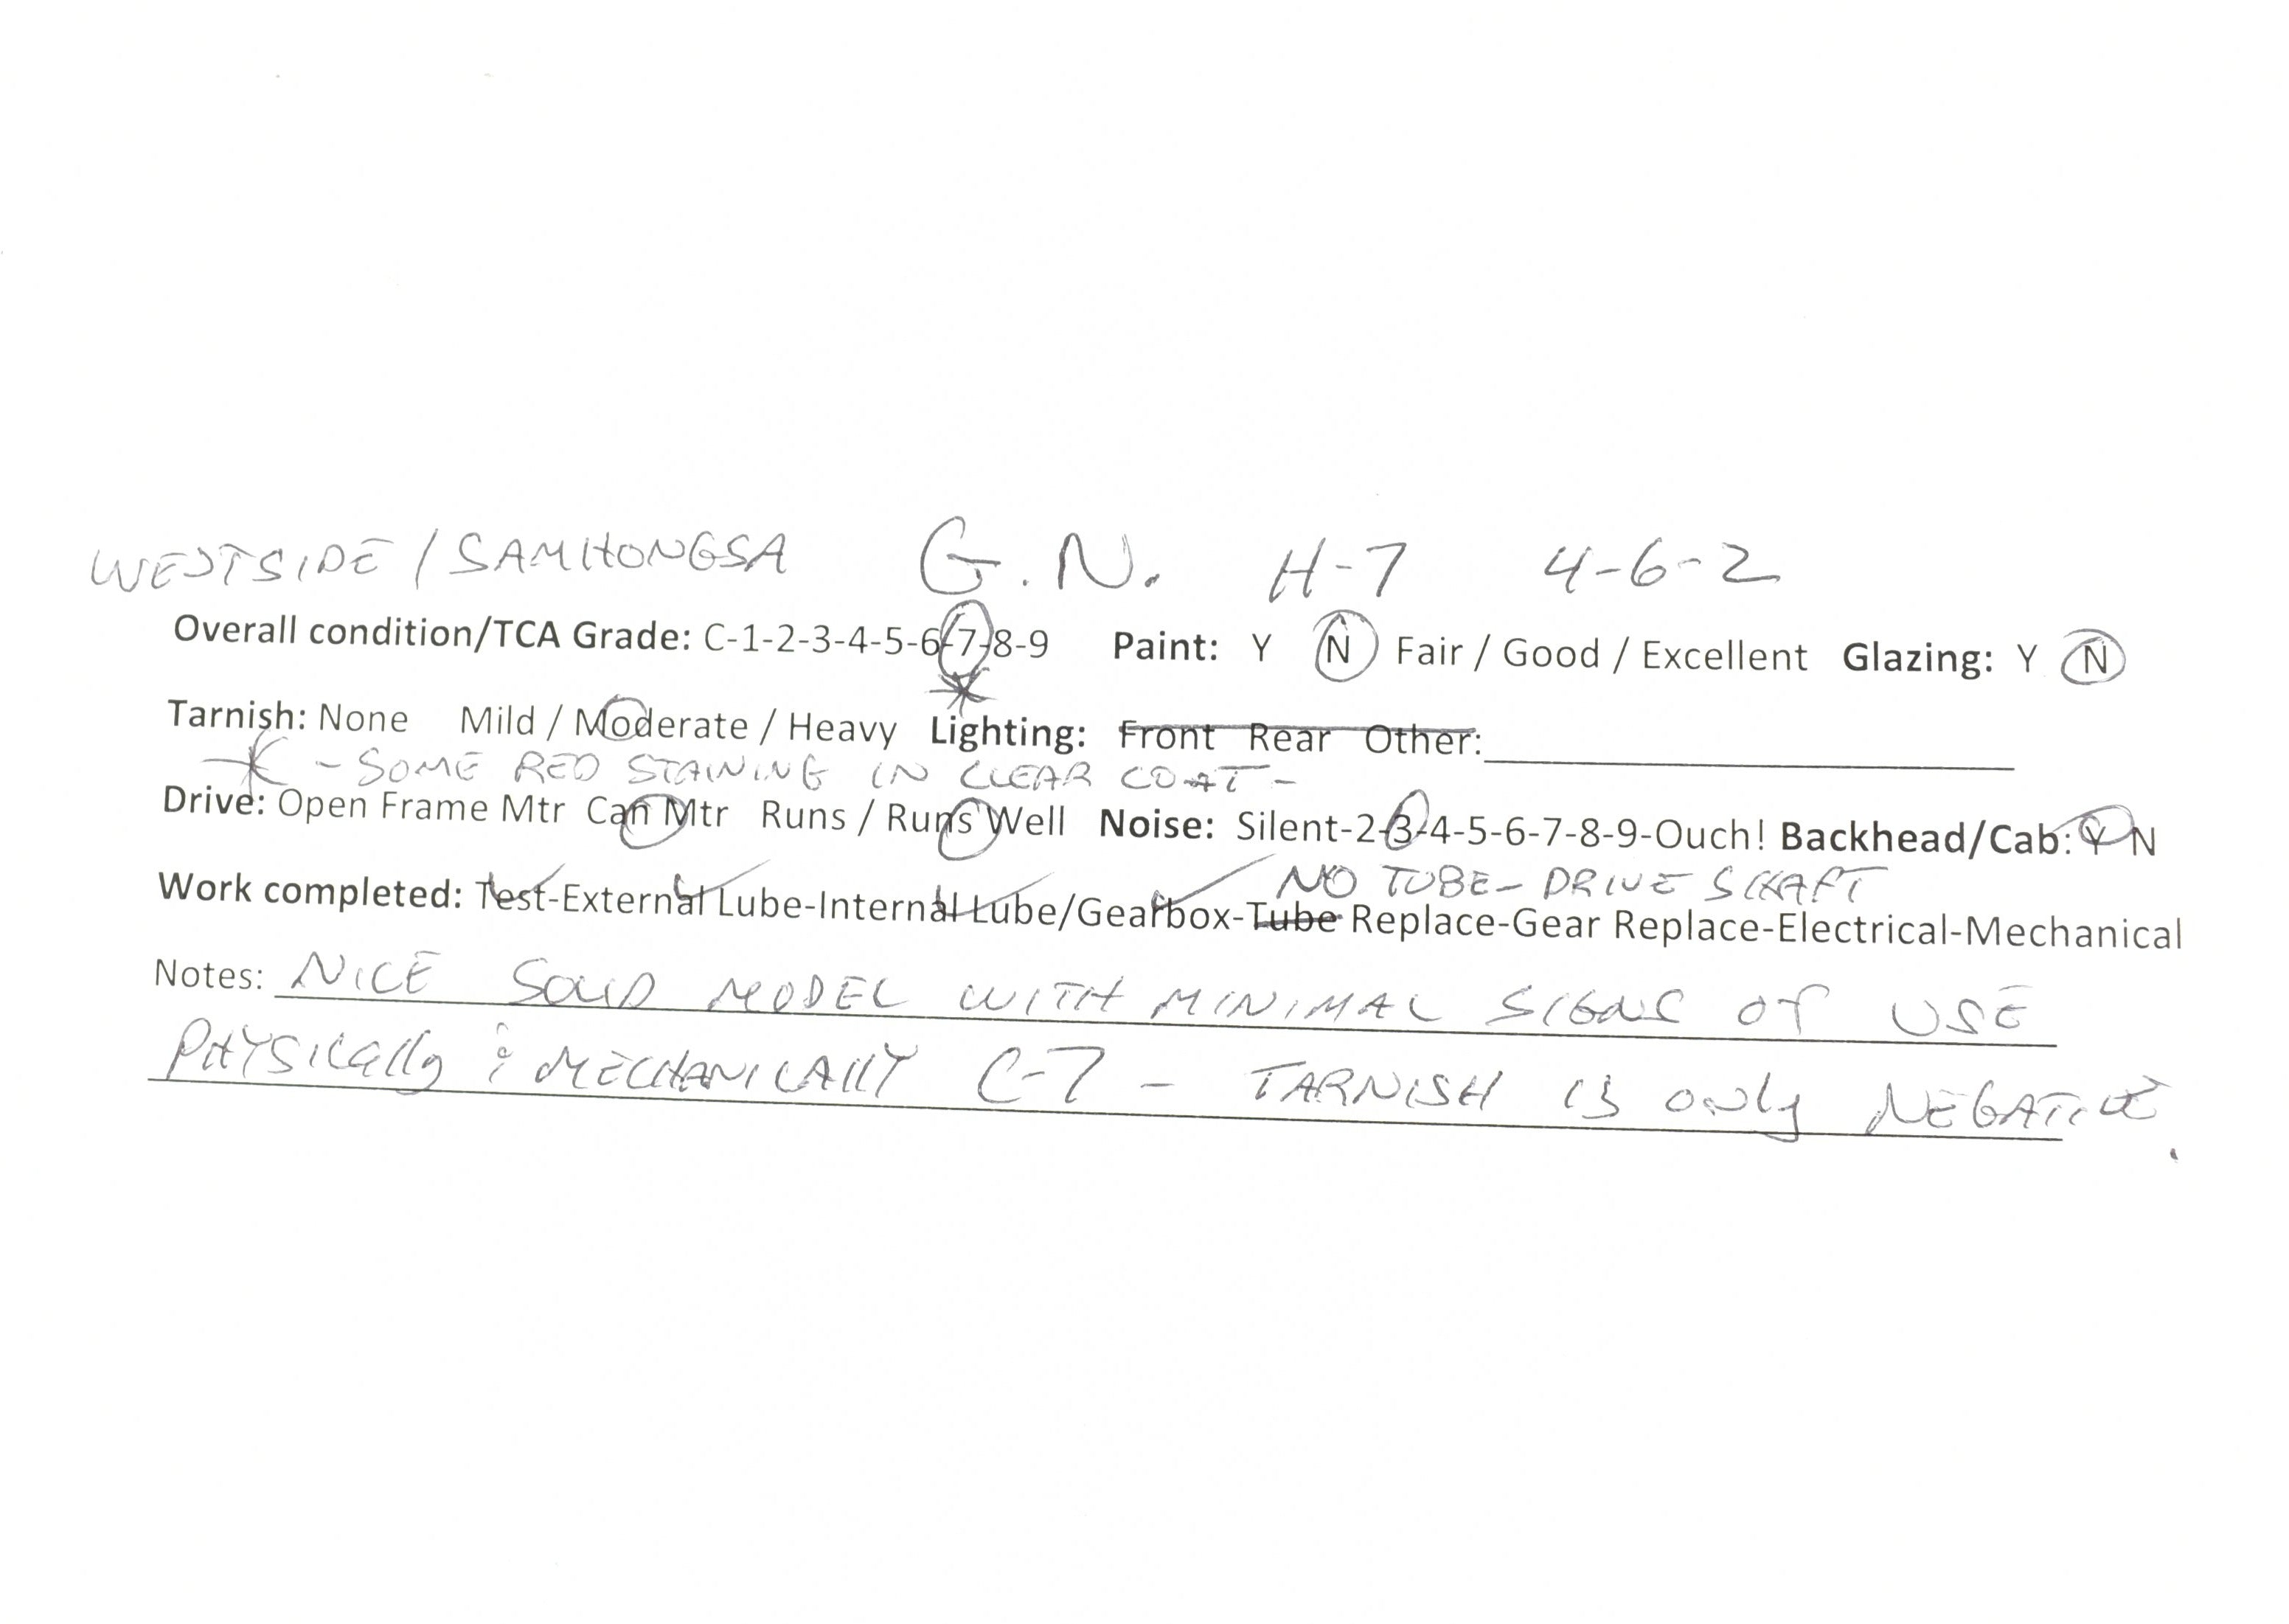 WESTSIDE / SAMHONGSA G.N. H-7 4-6-2
Overall condition/TCA Grade: C-1-2-3-4-5-6-7-8-9 Paint: Y N Fair / Good / Excellent Glazing: Y N
Tarnish: None Mild / Moderate / Heavy Lighting: Front Rear Other:
* - SOME RED STAINING IN CLEAR COAT -
Drive: Open Frame Mtr Can Mtr Runs / Runs Well Noise: Silent-2-3-4-5-6-7-8-9-Ouch! Backhead/Cab: Y N
NO TUBE - DRIVE SHAFT
Work completed: Test-External Lube-Internal Lube/Gearbox-Tube Replace-Gear Replace-Electrical-Mechanical
Notes: NICE SOLID MODEL WITH MINIMAL SIGNS OF USE
PHYSICALLY & MECHANICALLY C-7 - TARNISH IS ONLY NEGATIVE.